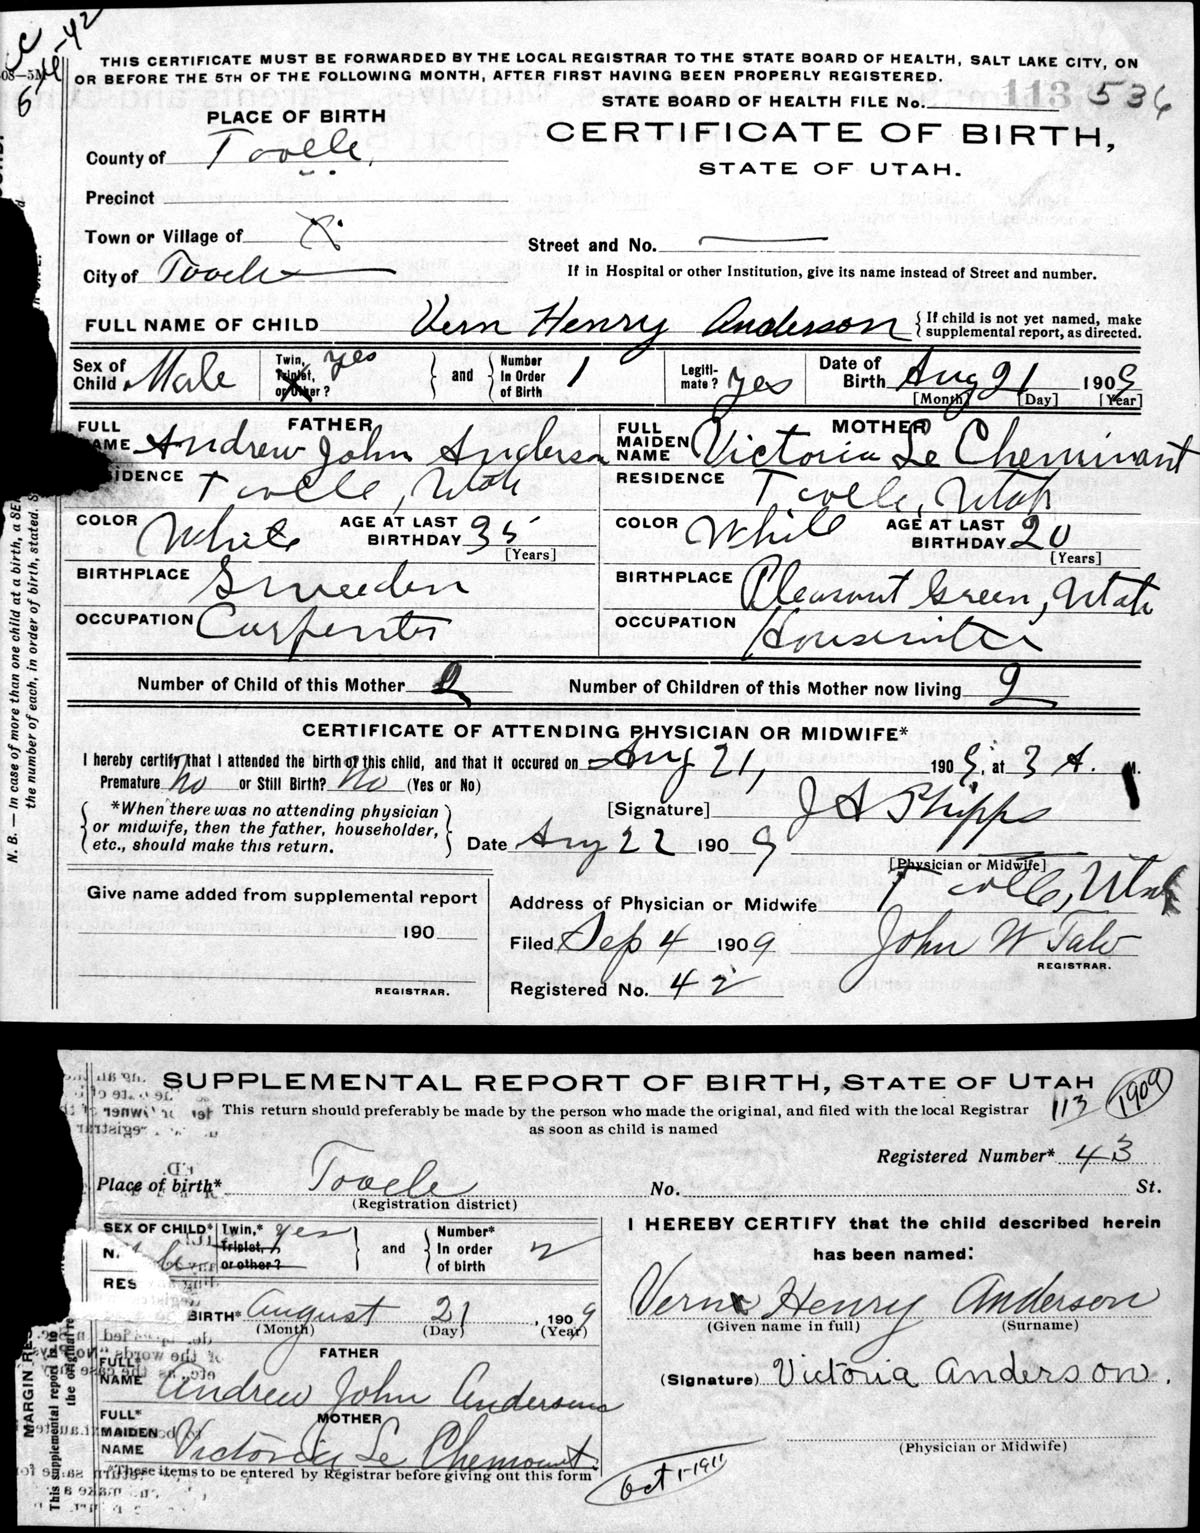 THIS CERTIFICATE MUST BE FORWARDED BY THE LOCAL REGISTRAR TO THE STATE BOARD OF HEALTH, SALT LAKE CITY, ON
OR BEFORE THE 5TH OF THE FOLLOWING MONTH, AFTER FIRST HAVING BEEN PROPERLY REGISTERED.
STATE BOARD OF HEALTH FILE No. 113 536
PLACE OF BIRTH
CERTIFICATE OF BIRTH,
STATE OF UTAH.
County of Tooele,
Precinct
Town or Village of
Street and No.
City of Tooele
If in Hospital or other Institution, give its name instead of Street and number.
FULL NAME OF CHILD Vern Henry Anderson { If child is not yet named, make supplemental report, as directed.
Sex of Child Male Twin, Triplet, or Other? yes and Number In Order of Birth 1 Legiti-mate? yes Date of Birth Aug 21 1909
[Month] [Day] [Year]
FATHER MOTHER
FULL NAME Andrew John Anderson FULL MAIDEN NAME Victoria Le Cheminant
RESIDENCE Tooele, Utah RESIDENCE Tooele, Utah
COLOR White AGE AT LAST BIRTHDAY 35 [Years] COLOR White AGE AT LAST BIRTHDAY 20 [Years]
BIRTHPLACE Sweeden BIRTHPLACE Pleasant Green, Utah
OCCUPATION Carpenter OCCUPATION Housewife
Number of Child of this Mother 2 Number of Children of this Mother now living 2
CERTIFICATE OF ATTENDING PHYSICIAN OR MIDWIFE*
I hereby certify that I attended the birth of this child, and that it occured on Aug 21, 1909, at 3 A. M.
Premature No or Still Birth? No (Yes or No)
*When there was no attending physician
or midwife, then the father, householder,
etc., should make this return.
[Signature] J A Phipps
Date Aug 22 1909
[Physician or Midwife]
Give name added from supplemental report
190
REGISTRAR.
Address of Physician or Midwife Tooele, Utah
Filed Sep 4 1909 John W Tate
REGISTRAR.
Registered No. 42
N. B. — In case of more than one child at a birth, a
the number of each, in order of birth, stated.
SUPPLEMENTAL REPORT OF BIRTH, STATE OF UTAH
113 1909
This return should preferably be made by the person who made the original, and filed with the local Registrar
as soon as child is named
Registered Number* 43
Place of birth* Tooele No. St.
(Registration district)
SEX OF CHILD* Twin,* Triplet, or other? yes and Number* In order of birth 2
I HEREBY CERTIFY that the child described herein
has been named:
BIRTH* August 21, 1909
(Month) (Day) (Year)
Vern Henry Anderson
(Given name in full) (Surname)
FATHER
FULL* NAME Andrew John Anderson
(Signature) Victoria Anderson.
MOTHER
FULL* MAIDEN NAME Victoria Le Chemont
(Physician or Midwife)
*These items to be entered by Registrar before giving out this form
Oct 1-1911